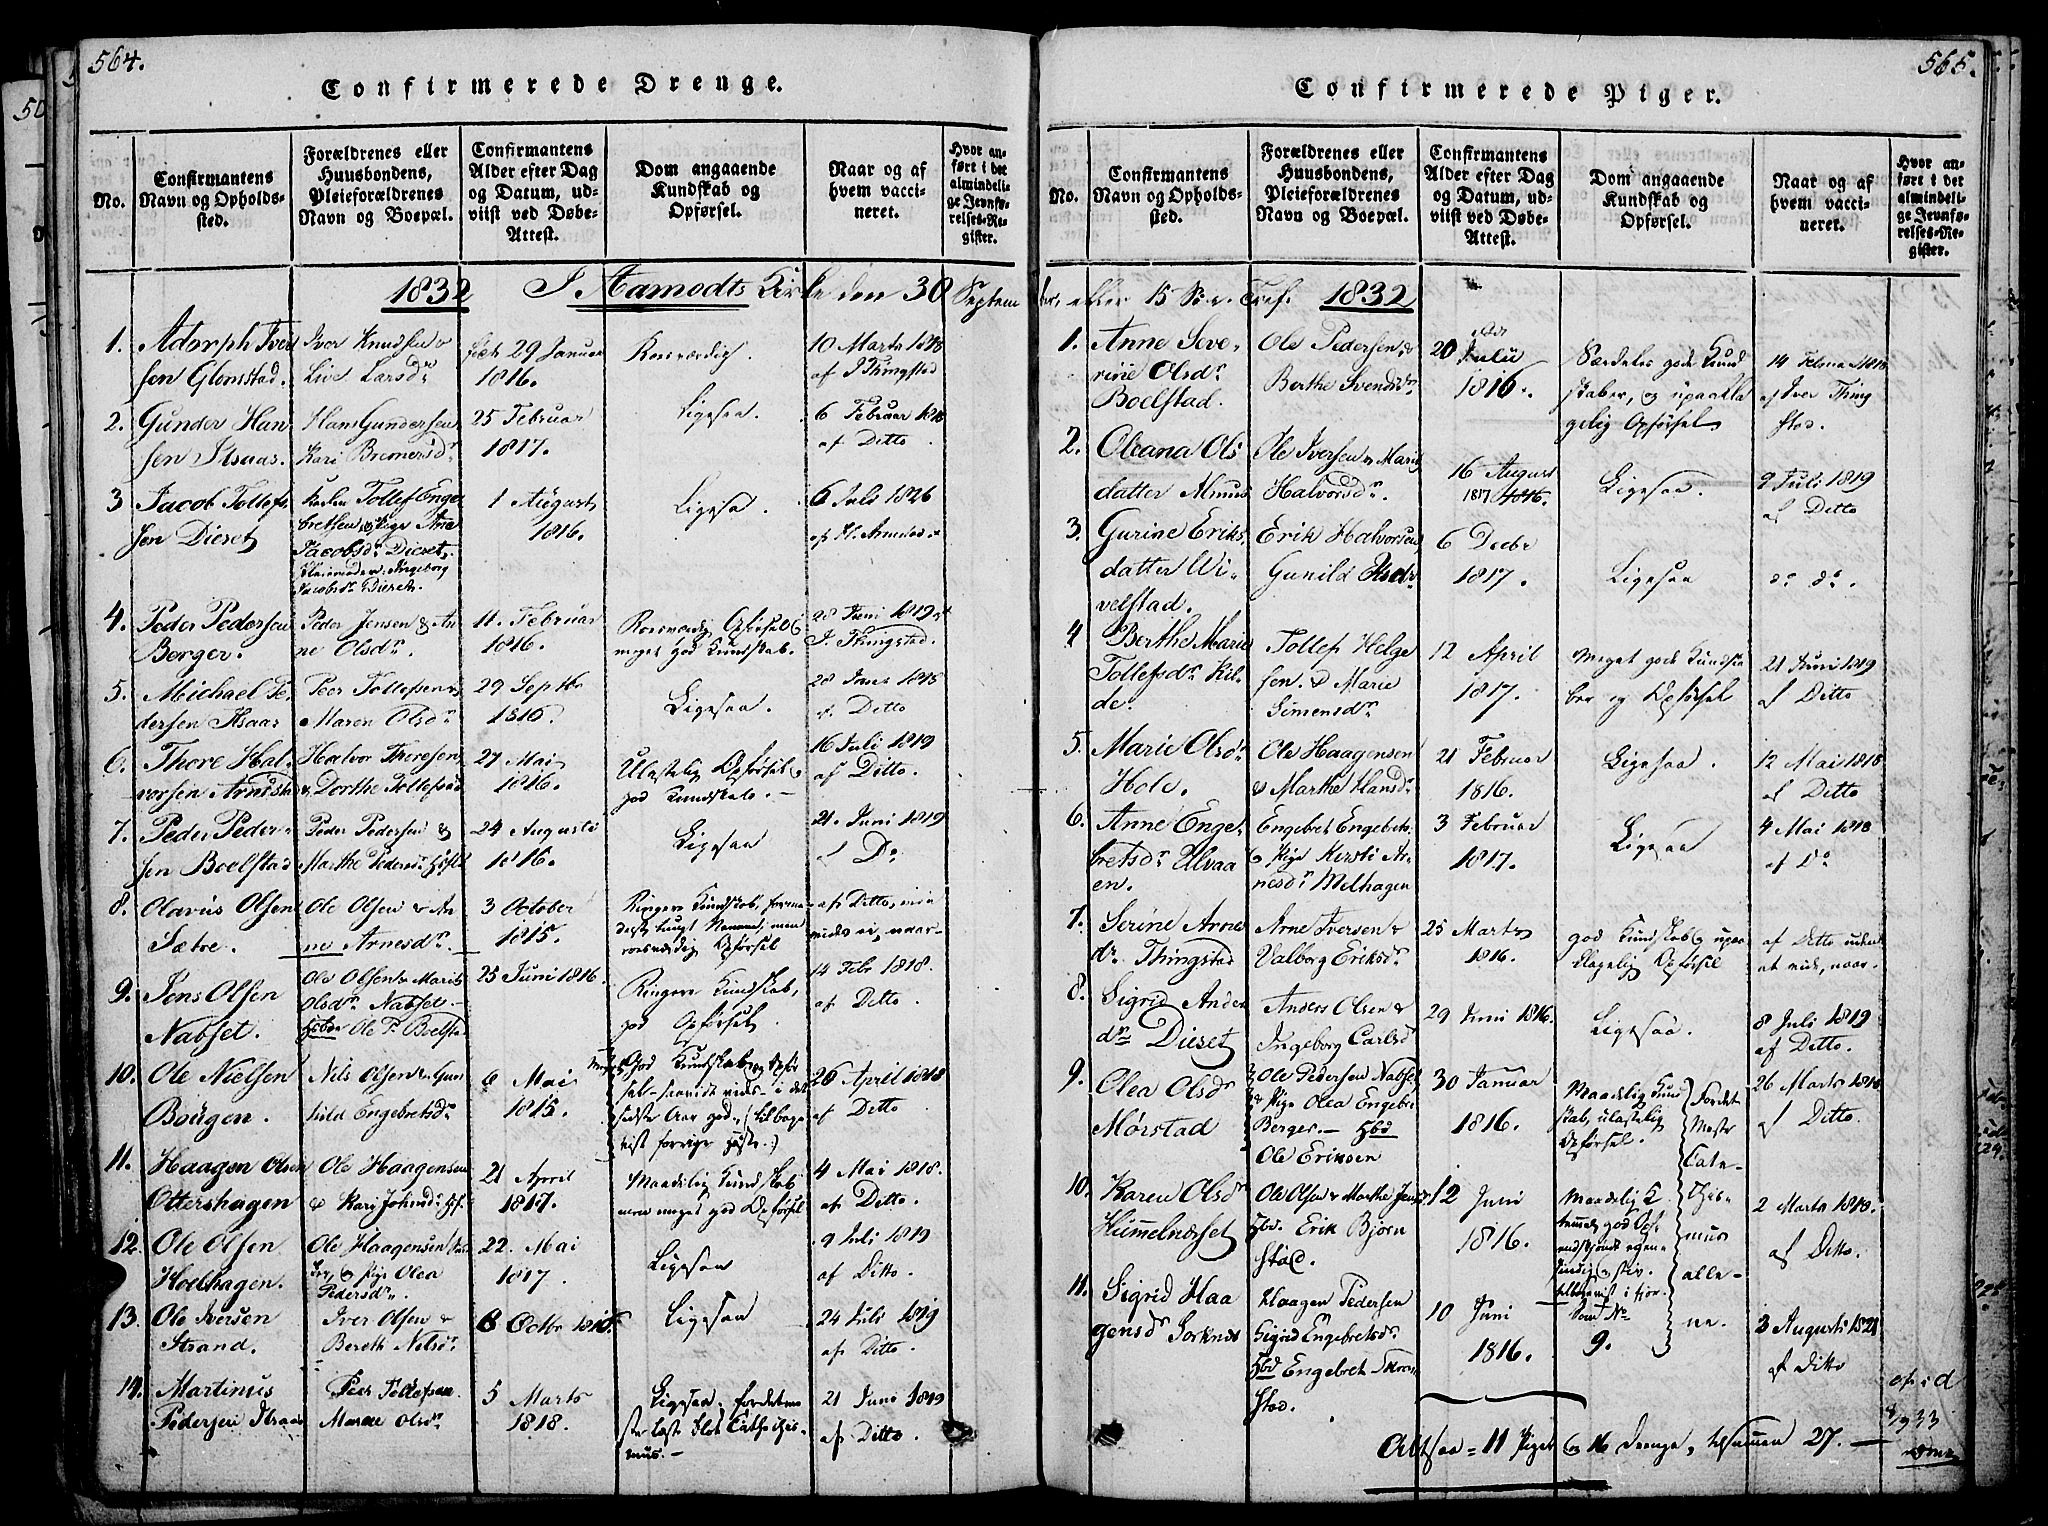 564.
Confirmerede Drenge.
No.
Confirmantens
Navn og Opholds-
sted.
Forældrenes eller
Huusbondens,
Pleieforældrenes
Navn og Boepæl.
Confirmantens
Alder efter Dag
og Datum, ud-
viist ved Døbe-
Attest.
Dom angaaende
Kundskab og
Opførsel.
Naar og af
hvem vacci-
neret.
Hvor an-
ført i det
almindeli-
ge Jevnfø-
relses-Re-
gister.
1832 I Aamodts Kirke den 30 Septem
1. Adorph Iver
sen Glomstad.
Iver Knudsen
Live Larsdr
29 Januar
1816.
Rosværdig.
10 Marts 1818
af I Thingstad
2. Gunder Han
sen Stsaas.
Hans Gundersen
Kari Bremersdr
25 Februar
1817.
Ligesaa.
6 Februar 1818
af Ditto.
3 Jacob Tollefs
sen Dieset
Tollef Enge
bretsen & Pige Ane
Jacobsdr Dieset,
Pleiemoder Ingeborg
Jacobsdr Dieset.
1 August
1816.
Ligesa.
6 Juli 1826
4. Peder Pedersen
Berger.
Peder Jensen & An
ne Olsdr.
11. Februar
1816.
Rosværdig Opførsel &
meget god Kundskab.
28 Juni 1819 af
I. Thingstad.
5. Michael Pe
dersen Stsaas
Peer Tollefsen &
Maren Olsdr
29 Septbr
1816.
Ligesaa.
28 Juni 1818
af Ditto
6. Thore Hal
vorsen Arndsta
Halvor Thoresen
& Dorthe Tollefsdr
27 Mai
1816.
Ulastelig Opførsel &
god Kundskab. –
16 Juli 1819
af Ditto.
7. Peder Peder-
sen Boelstad
Peder Pedersen &
Marthe Pedersdr
24 Augusti
1816.
Ligesaa
21. Juni 1819
af Do
8. Olavus Olsen
Sætre.
Ole Olsen & An
ne Arnesdr.
3 October
1815.
Ringere Kundskab,
tungt Nemme, men
rosværdig Opførsel
af Ditto,
vides ei, naar-
9. Jens Olsen
Nabset.
Ole Olsen & Marit
Olsdr Nabset.
Hsbd Ole P. Boelstad
25 Juni 1816.
Ringere Kundskab,
god Opførsel.
14 Febr 1818.
af Ditto
10. Ole Nielsen
Bourgen.
Nils Olsen & Gun
hild Engebretsdr
6 Mai
1815.
god Kundskab og Opfør
sel - saavidt vides - i det
sidste Aar god, (tilbage
vist forrige Høst.)
26 April 1818
af Ditto
11. Haagen Olsen
Ottershagen
Ole Haagensen
& Kari Johnsdr
21 April
1817.
Maadelig Kundskab
men meget god Opførsel
4 Mai 1818.
af Ditto.
12. Ole Olsen
Hoelhagen.
Ole Haagensen
& Pige Olea
Pedersdr.
22. Mai
1817.
Ligesaa
9 Juli 1819
af Ditto.
13. Ole Iversen
Strand.
Iver Olsen &
Bereth Nelsdr
8 Octbr
Ligesaa
24 Juli 1819
af Ditto.
14. Martinus
Pedersen Stsaas
Peer Tollefsen
Maren Olsdr
5 Marts
1818.
Ligesaa, fordetme
ste læst blot Cathechis-
mus. –
21 Juni 1819
af Ditto.
565.
Confirmerede Piger.
No.
Confirmantens
Navn og Opholds-
sted.
Forældrenes eller
Huusbondens,
Pleieforældrenes
Navn og Boepæl.
Confirmantens
Alder efter Dag
og Datum, ud-
viist ved Døbe-
Attest.
Dom angaaende
Kundskab og
Opførsel.
Naar og af
hvem vacci-
neret.
Hvor an-
ført i det
almindeli-
ge Jevnfø-
relses-Re-
gister.
ber, eller 15 Søn. Tref. 1832
1. Anne Seve-
rine Olsdr
Boelstad.
Ole Pedersen &
Berthe Svendsdr
20 Juli
1816.
Særdeles gode Kund
skaber, og upaakla
gelig Opførsel.
14 Februar 1818
af Iver Thing
stad.
2. Oleana Ols
datter Almus
Ole Iversen & Marit
Halvorsdr.
16 August
1817 1816.
Ligesaa.
9 Juli 1819
af Ditto
3. Gurine Eriks
datter Wi-
velstad.
Erik Halvorsen
Gunild Olsdr
6 Decbr
1817.
Ligesaa
do do.
4 Berthe Marie
Tollefsdr Kil-
de.
Tollef Helge
sen & Marie
Simensdr
12 April
1817.
Meget gode Kundska
ber og Opførsel
21 Juni 1819
af Ditto
5. Marie Olsdr
Hole.
Ole Haagensen
& Marthe Hansdr
21 Februar
1816.
Ligesaa.
12 Mai 1818
af Ditto
6. Anne Enge
bretsdr Ulvaa
en.
Engebret Engebrets
& Pige Kersti Ar-
nesdr Melhagen
3 Februar
1817.
Ligesaa
4 Mai 1818
af Do
7. Serine Arne
dr Thingstad
Arne Iversen &
Valborg Eriksdr
25 Marts
1816.
god Kundskab & upaa
klagelig Opførsel
af Ditto uden
at vide, naar.
8. Sigrid Anders
dr Dieset
Anders Olsen &
Ingeborg Carlsd
29 Juni 1816.
Ligesaa.
8 Juli 1819
af Ditto.
9. Olea Olsdr
Mørstad
Ole Pedersen Nabset
& Pige Olea Engebr
Berger. – Hsbd
Ole Eriksen
30 Januar
1816.
Maadelig Kund
skab, ulastelig
Opførsel.
Fordet
Meste
Cate-
chis-
mus
alle-
ne.
26 Marts 1818
af Ditto.
10. Karen Olsdr
Himmelnæset
Ole Olsen & Marthe Jensd
Hsbd. Erik Bjørn
stad.
12 Juni
1816.
Maadelig K.
2 Marts 1818.
af Ditto.
11. Sigrid Haa
gensdr Sorknes
Haagen Pedersen
Sigrid Engebretsdr
Hsbd Engebret
stad.
10 Juni
1816.
Som No
9.
3 Augusti 1821
af Ditto
Altsaa = 11 Piger & 16 Drenge, tilsammen 27. –